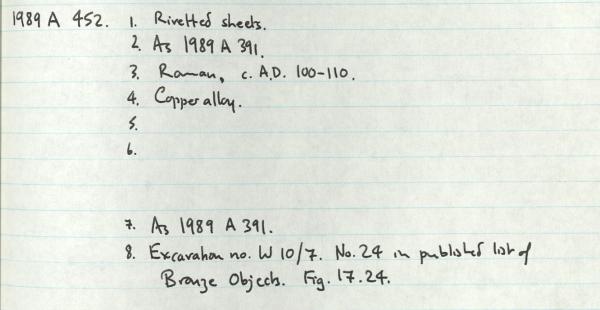 1989 A 452. 1. Rivetted sheets.
2. As 1989 A 391.
3. Roman, c. A.D. 100-110.
4. Copper alloy.
5.
6.
7. As 1989 A 391.
8. Excavation no. W 10/7. No. 24 in published list of
Bronze Objects. Fig. 17.24.